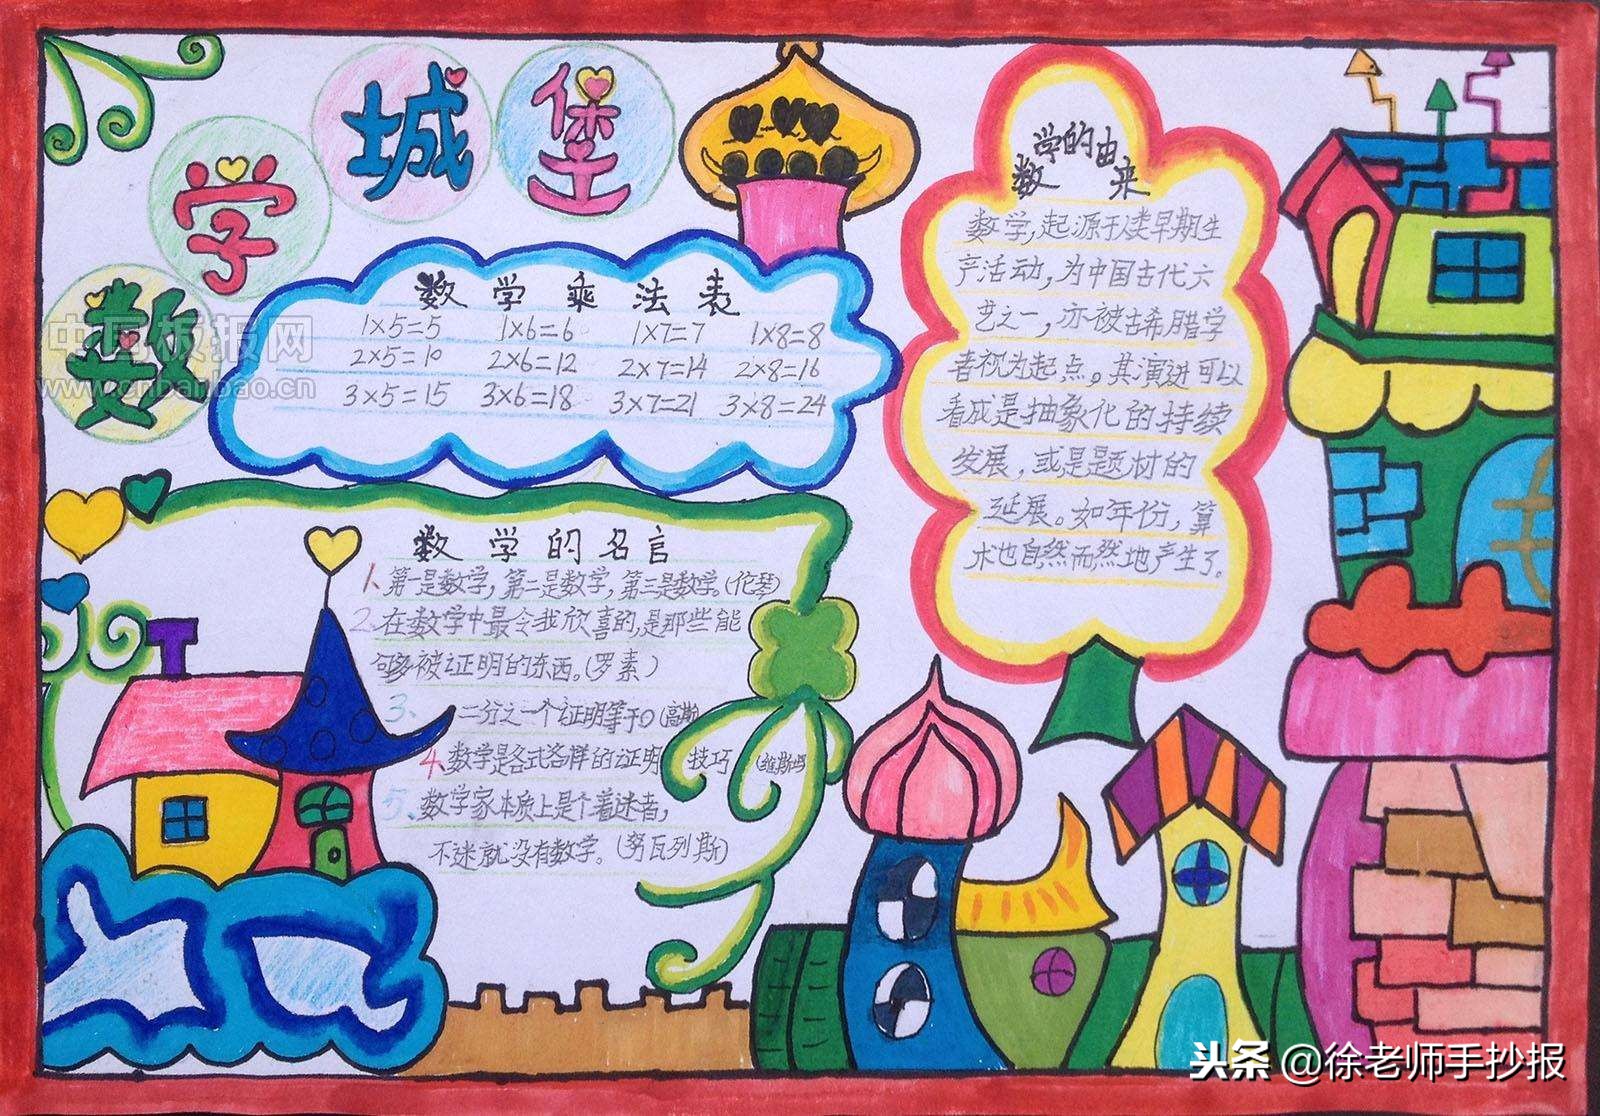 数学城堡
中国板报网
www.cnbanbao.cn
数学乘法表
1×5=5 1×6=6 1×7=7 1×8=8
2×5=10 2×6=12 2×7=14 2×8=16
3×5=15 3×6=18 3×7=21 3×8=24
数学的名言
1、第一是数学，第二是数学，第三是数学。(伦琴)
2、在数学中最令我欣喜的，是那些能
够被证明的东西。(罗素)
3、二分之一个证明等于0(高斯)
4、数学是各式各样的证明技巧(维斯坦)
5、数学家本质上是个着迷者，
不迷就没有数学。(努瓦列斯)
数学的由来
数学，起源于人类早期生
产活动，为中国古代六
艺之一，亦被古希腊学
者视为起点。其演进可以
看成是抽象化的持续
发展，或是题材的
延展。如年份，算
术也自然而然地产生了。
头条 @徐老师手抄报